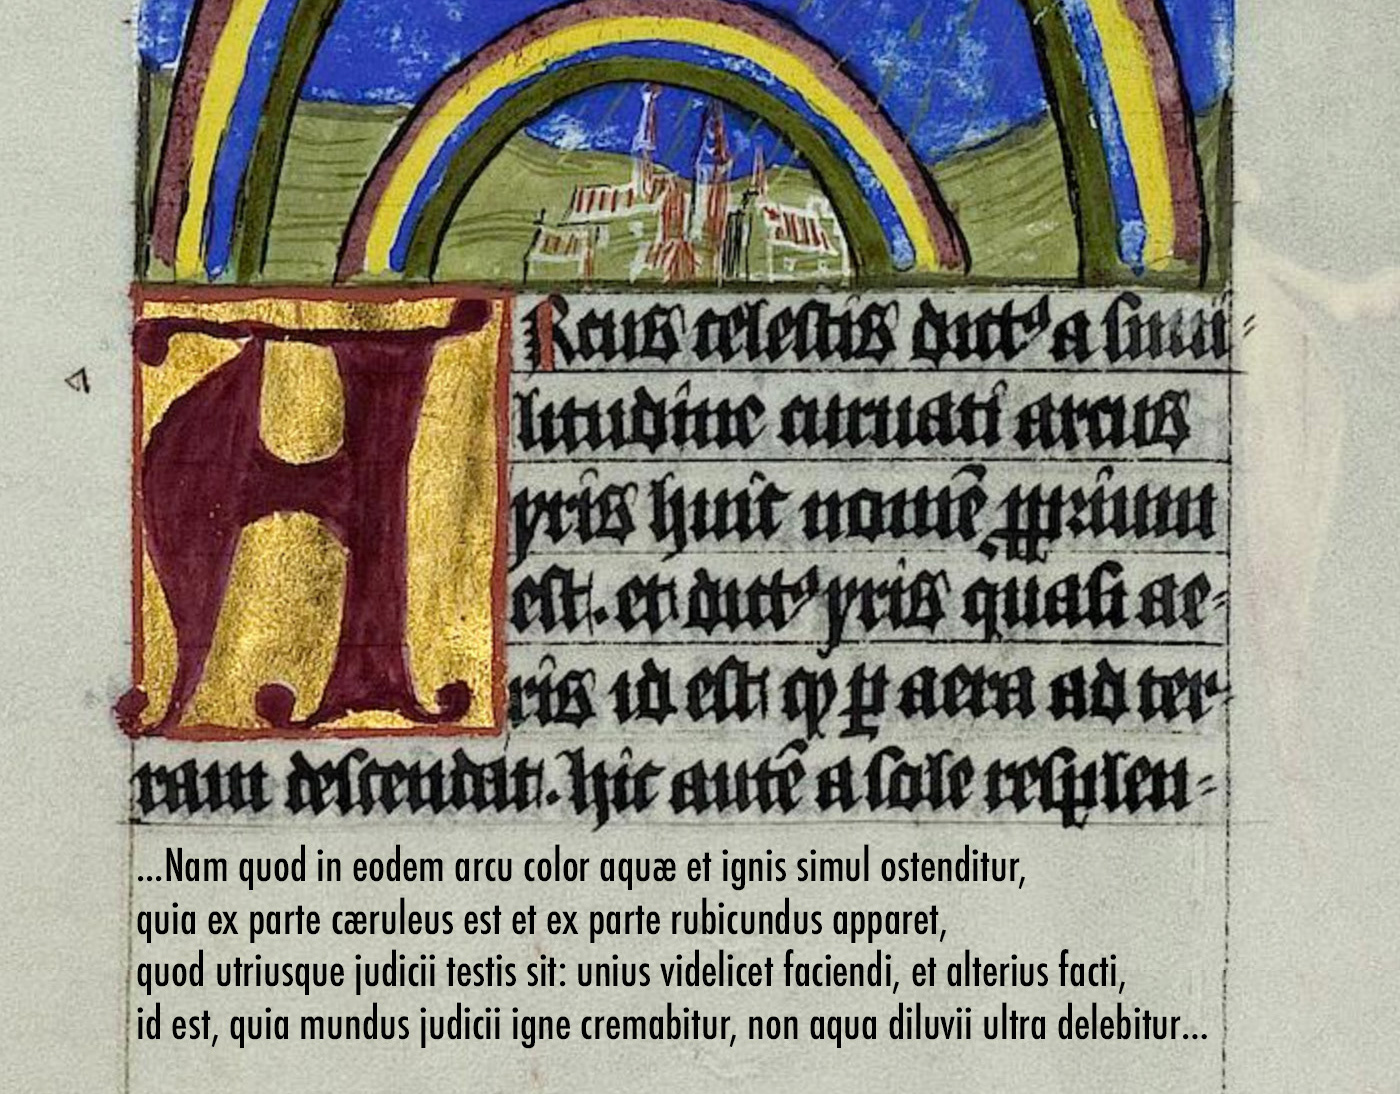 Arcus celestis dictꝰ a simi⸗
litudine curuati arcus
yris huic nomē ꝓprium
est. et dictꝰ yris quasi ae⸗
ris id est qꝫ ꝑ aera ad ter⸗
ram descendat. hic autē a sole resplen⸗
...Nam quod in eodem arcu color aquæ et ignis simul ostenditur,
quia ex parte cæruleus est et ex parte rubicundus apparet,
quod utriusque judicii testis sit: unius videlicet faciendi, et alterius facti,
id est, quia mundus judicii igne cremabitur, non aqua diluvii ultra delebitur...